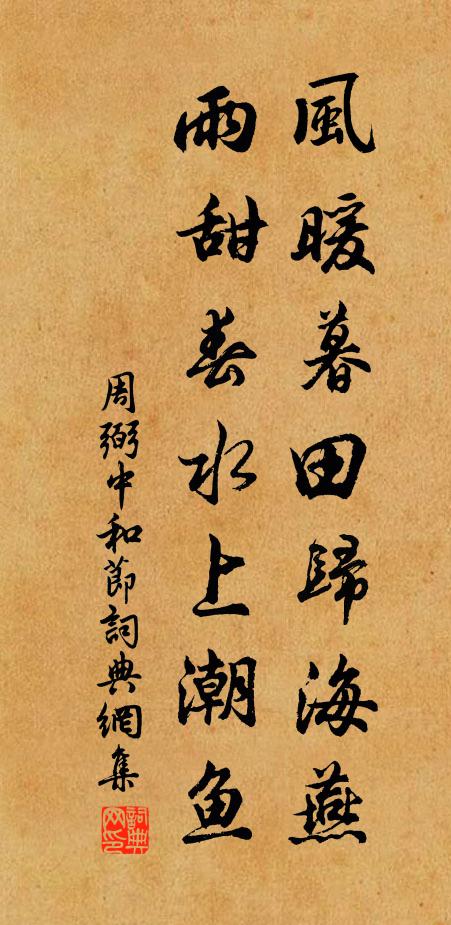 風暖暮田歸海燕
雨甜春水上潮鱼
周弼中和節詞典網集
詞典網印